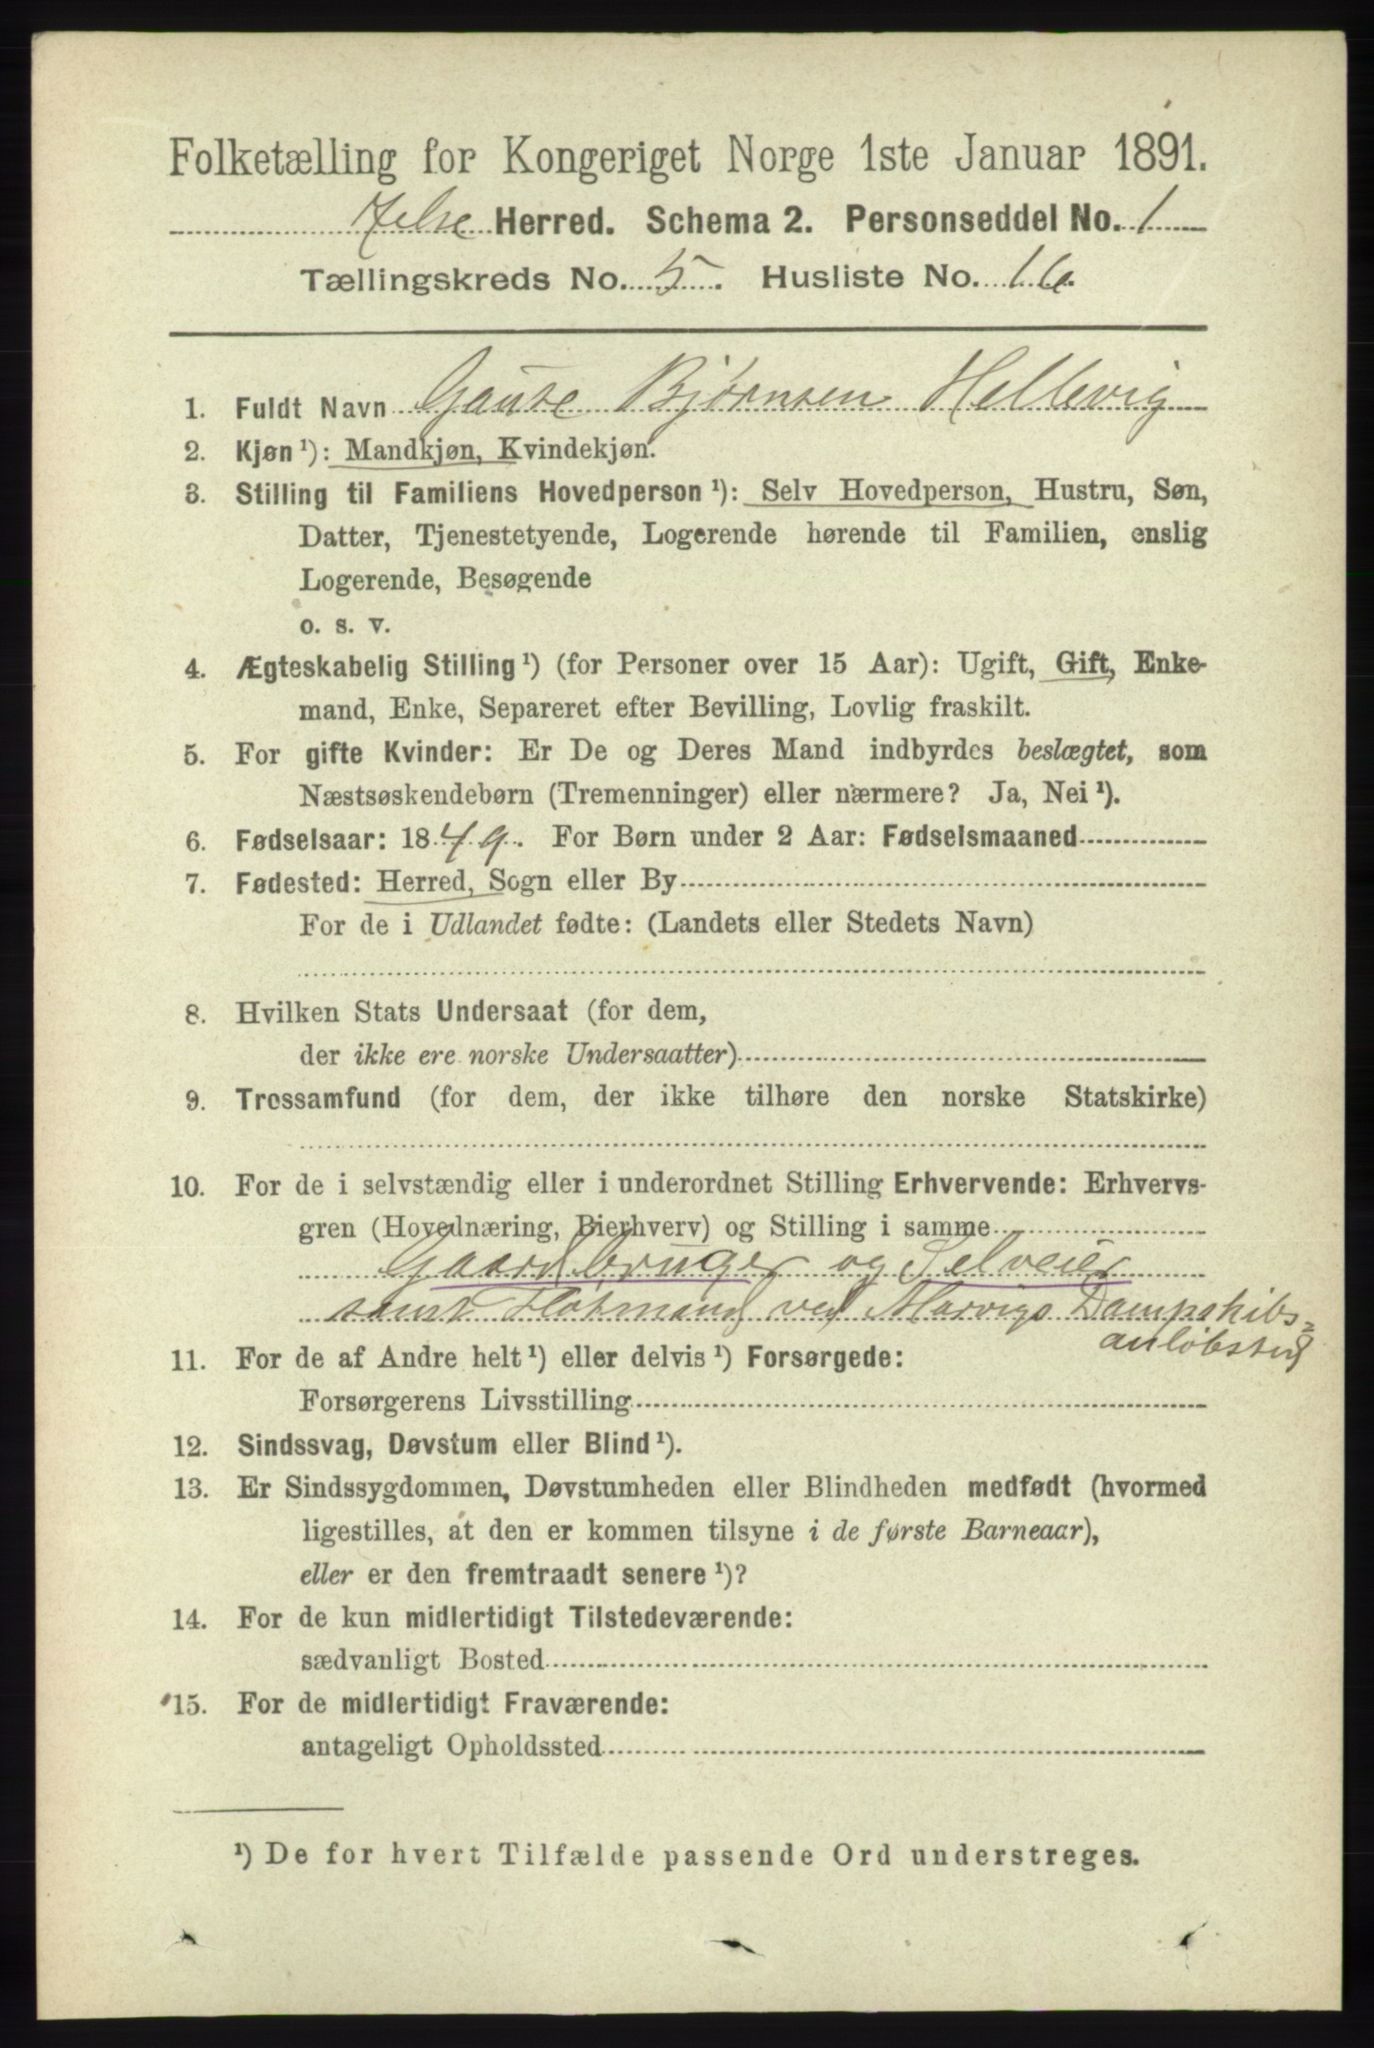 Folketælling for Kongeriget Norge 1ste Januar 1891.
Jelse Herred. Schema 2. Personseddel No. 1
Tællingskreds No. 5. Husliste No. 16.
1. Fuldt Navn Gaute Bjørnsen Hellevig
2. Kjøn ¹): Mandkjøn, Kvindekjøn.
3. Stilling til Familiens Hovedperson ¹): Selv Hovedperson, Hustru, Søn,
Datter, Tjenestetyende, Logerende hørende til Familien, enslig
Logerende, Besøgende
o. s. v.
4. Ægteskabelig Stilling ¹) (for Personer over 15 Aar): Ugift, Gift, Enke-
mand, Enke, Separeret efter Bevilling, Lovlig fraskilt.
5. For gifte Kvinder: Er De og Deres Mand indbyrdes beslægtet, som
Næstsøskendebørn (Tremenninger) eller nærmere? Ja, Nei ¹).
6. Fødselsaar: 1849. For Børn under 2 Aar: Fødselsmaaned
7. Fødested: Herred, Sogn eller By
For de i Udlandet fødte: (Landets eller Stedets Navn)
8. Hvilken Stats Undersaat (for dem,
der ikke ere norske Undersaatter)
9. Trossamfund (for dem, der ikke tilhøre den norske Statskirke)
10. For de i selvstændig eller i underordnet Stilling Erhvervende: Erhvervs-
gren (Hovednæring, Bierhverv) og Stilling i samme
Gaardbruger og Selveier
samt Fløtmand ved Marvigs Dampskibs=
anløbsted
11. For de af Andre helt ¹) eller delvis ¹) Forsørgede:
Forsørgerens Livsstilling
12. Sindssvag, Døvstum eller Blind ¹).
13. Er Sindssygdommen, Døvstumheden eller Blindheden medfødt (hvormed
ligestilles, at den er kommen tilsyne i de første Barneaar),
eller er den fremtraadt senere ¹)?
14. For de kun midlertidigt Tilstedeværende:
sædvanligt Bosted
15. For de midlertidigt Fraværende:
antageligt Opholdssted
¹) De for hvert Tilfælde passende Ord understreges.